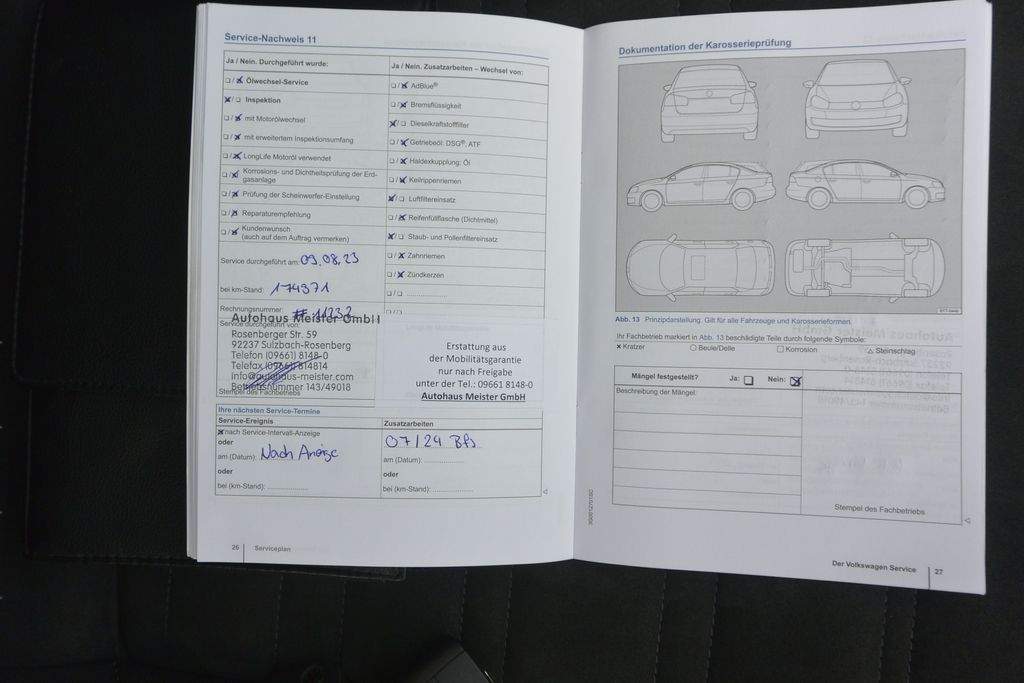 Service-Nachweis 11
Ja / Nein. Durchgeführt wurde:
☐ / ☒ Ölwechsel-Service
☒ / ☐ Inspektion
☐ / ☒ mit Motorölwechsel
☐ / ☒ mit erweitertem Inspektionsumfang
☐ / ☒ LongLife Motoröl verwendet
☐ / ☒ Korrosions- und Dichtheitsprüfung der Erd-
gasanlage
☐ / ☒ Prüfung der Scheinwerfer-Einstellung
☐ / ☒ Reparaturempfehlung
☐ / ☒ Kundenwunsch
(auch auf dem Auftrag vermerken)
Service durchgeführt am: 09.08.23
bei km-Stand: 174371
Rechnungsnummer: #
Service durchgeführt von:
Autohaus Meister GmbH
Rosenberger Str. 59
92237 Sulzbach-Rosenberg
Telefon (09661) 8148-0
Telefax (09661) 814814
info@autohaus-meister.com
Betriebsnummer 143/49018
Stempel des Fachbetriebs
Ja / Nein. Zusatzarbeiten – Wechsel von:
☐ / ☒ AdBlue®
☐ / ☒ Bremsflüssigkeit
☒ / ☐ Dieselkraftstofffilter
☐ / ☒ Getriebeöl: DSG®, ATF
☐ / ☒ Haldexkupplung: Öl
☐ / ☒ Keilrippenriemen
☒ / ☐ Luftfiltereinsatz
☐ / ☒ Reifenfüllflasche (Dichtmittel)
☒ / ☐ Staub- und Pollenfiltereinsatz
☐ / ☒ Zahnriemen
☐ / ☒ Zündkerzen
☐ / ☐ ....................
Erstattung aus
der Mobilitätsgarantie
nur nach Freigabe
unter der Tel.: 09661 8148-0
Autohaus Meister GmbH
Ihre nächsten Service-Termine
Service-Ereignis
☒ nach Service-Intervall-Anzeige
oder
am (Datum): Nach Anzeige
oder
bei (km-Stand): ....................
Zusatzarbeiten
07/24 Bfs
am (Datum): ....................
oder
bei (km-Stand): ....................
26 Serviceplan
Dokumentation der Karosserieprüfung
Abb. 13 Prinzipdarstellung. Gilt für alle Fahrzeuge und Karosserieformen.
Ihr Fachbetrieb markiert in Abb. 13 beschädigte Teile durch folgende Symbole:
× Kratzer ○ Beule/Delle ☐ Korrosion △ Steinschlag
Mängel festgestellt? Ja: ☐ Nein: ☒
Beschreibung der Mängel:
Stempel des Fachbetriebs
Der Volkswagen Service 27